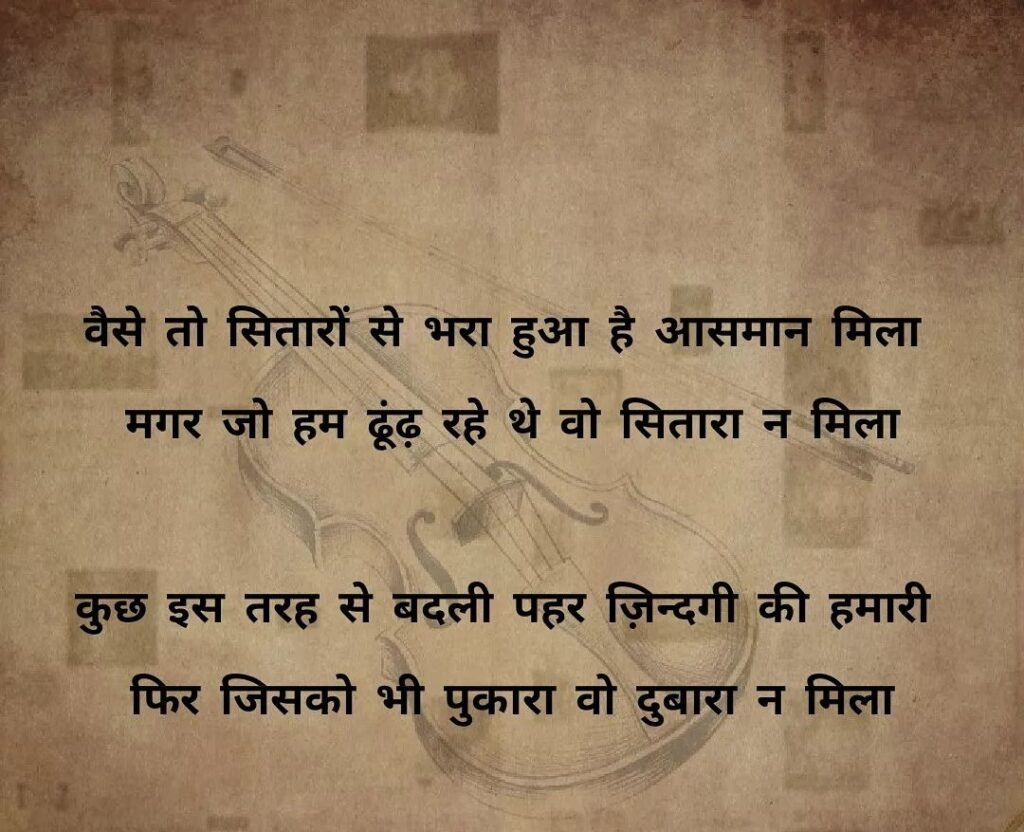 वैसे तो सितारों से भरा हुआ है आसमान मिला
मगर जो हम ढूंढ़ रहे थे वो सितारा न मिला
कुछ इस तरह से बदली पहर ज़िन्दगी की हमारी
फिर जिसको भी पुकारा वो दुबारा न मिला